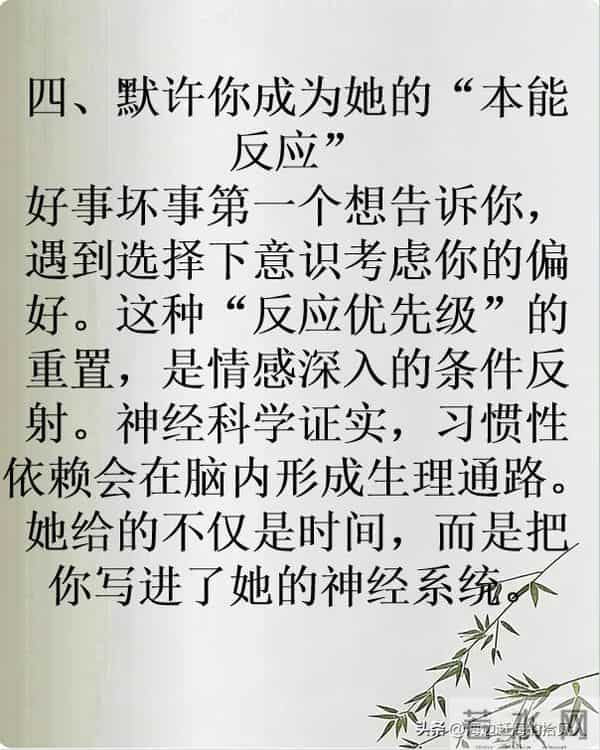 四、默许你成为她的“本能
反应”
好事坏事第一个想告诉你，
遇到选择下意识考虑你的偏
好。这种“反应优先级”的
重置，是情感深入的条件反
射。神经科学证实，习惯性
依赖会在脑内形成生理通路。
她给的不仅是时间，而是把
你写进了她的神经系统。
头条
若水网